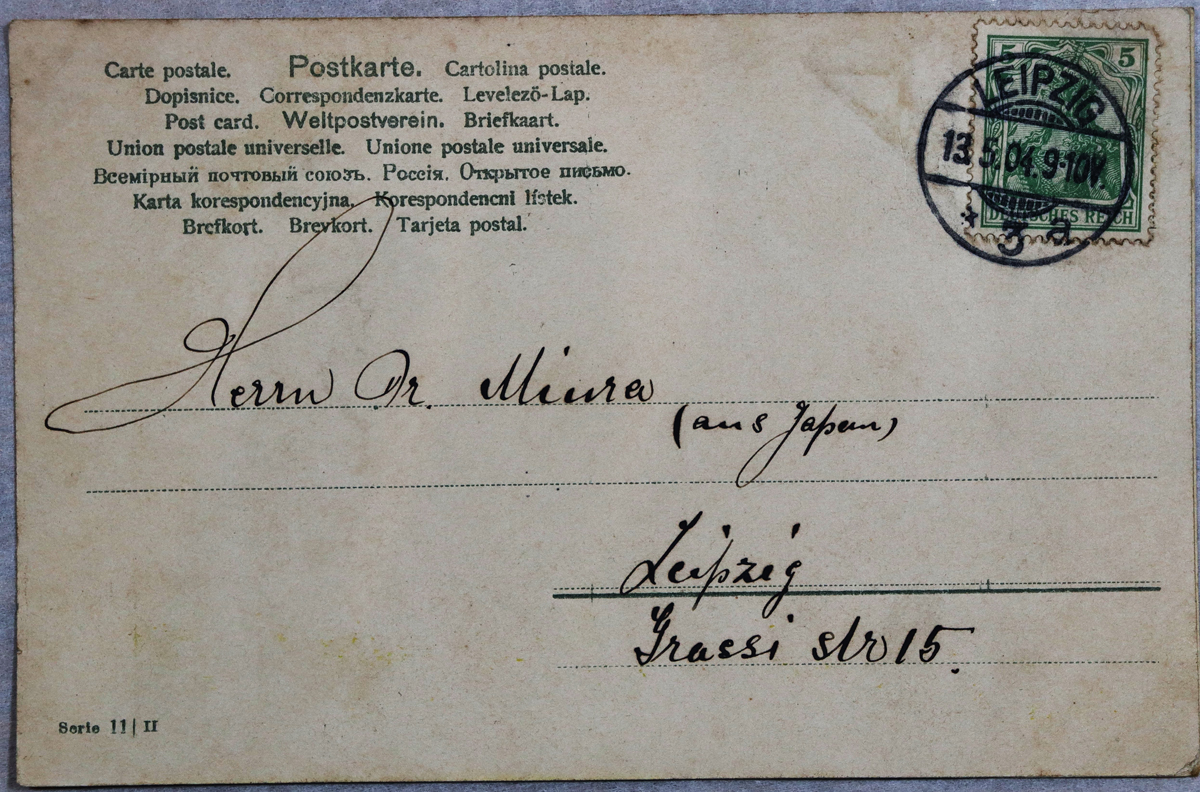 Carte postale. Postkarte. Cartolina postale.
Dopisnice. Correspondenzkarte. Levelezö-Lap.
Post card. Weltpostverein. Briefkaart.
Union postale universelle. Unione postale universale.
Всемірный почтовый союзъ. Россія. Открытое письмо.
Karta korespondencyjna, Korespondencni lístek.
Brefkort. Brevkort. Tarjeta postal.
5 5
LEIPZIG
13.5.04.9-10V.
DEUTSCHES REICH
* 3 a
Herrn Dr. Miura
(aus Japan)
Leipzig
Grassi str 15.
Serie 11 | II